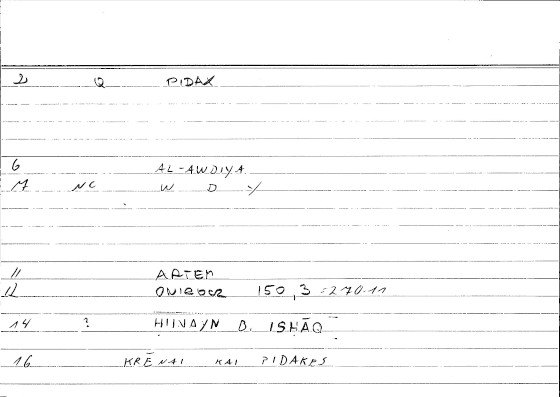 2 Q PIDAX
6 AL-AWDIYA
M NC W D Y
11 ARTEM
12 ONIROCR 150,3 = 270.11
14 ? ḤUNAYN B. ISḤĀQ
16 KRĒNAI KAI PIDAKES